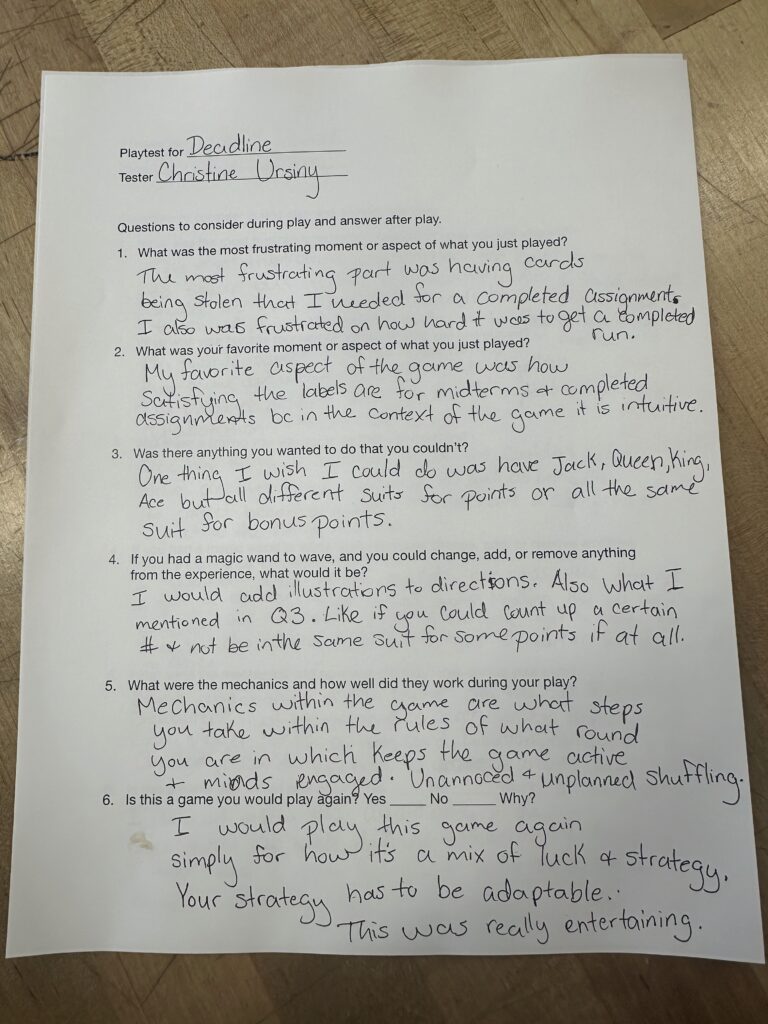 Playtest for Deadline
Tester Christine Ursiny
Questions to consider during play and answer after play.
1. What was the most frustrating moment or aspect of what you just played?
The most frustrating part was having cards
being stolen that I needed for a completed assignment.
I also was frustrated on how hard it was to get a completed
run.
2. What was your favorite moment or aspect of what you just played?
My favorite aspect of the game was how
Satisfying the labels are for midterms + completed
assignments bc in the context of the game it is intuitive.
3. Was there anything you wanted to do that you couldn't?
One thing I wish I could do was have Jack, Queen, King,
Ace but all different suits for points or all the same
suit for bonus points.
4. If you had a magic wand to wave, and you could change, add, or remove anything
from the experience, what would it be?
I would add illustrations to directions. Also what I
mentioned in Q3. Like if you could count up a certain
# + not be in the same suit for some points if at all.
5. What were the mechanics and how well did they work during your play?
Mechanics within the game are what steps
you take within the rules of what round
you are in which keeps the game active
+ minds engaged. Unannoced + unplanned shuffling.
6. Is this a game you would play again? Yes ____ No _____ Why?
I would play this game again
simply for how it's a mix of luck & strategy.
Your strategy has to be adaptable.
This was really entertaining.